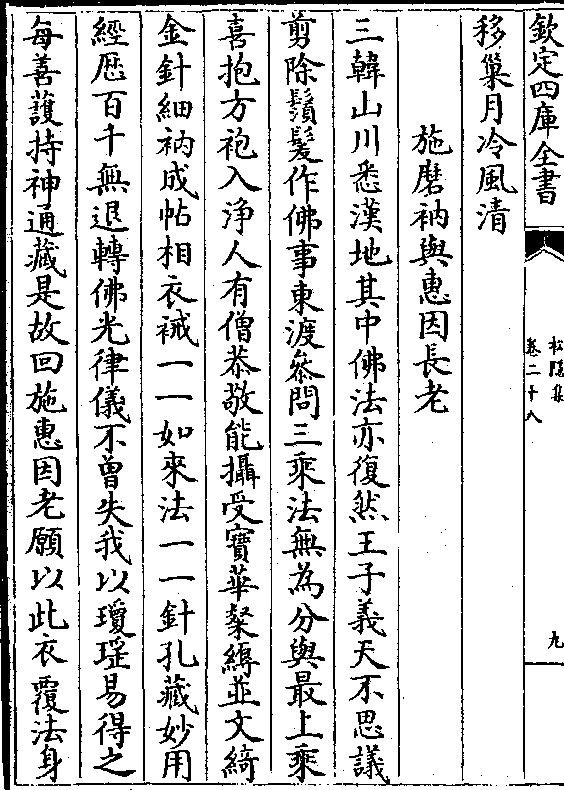 欽定四庫全書
卷二十八
九
移巢月冷風清
施磨衲與惠因長老
三韓山川悉漢地其中佛法亦復然王子義天不思議
剪除鬚髮作佛事東渡叅問三乘法無為分與最上乘
喜抱方袍入淨人有僧恭敬能攝受寶華粲縟並文綺
金針細衲成帖相衣裓一一如來法一一針孔藏妙用
經歷百千無退轉佛光律儀不曾失我以瓊瑤易得之
每善護持神通藏是故回施惠因老願以此衣覆法身